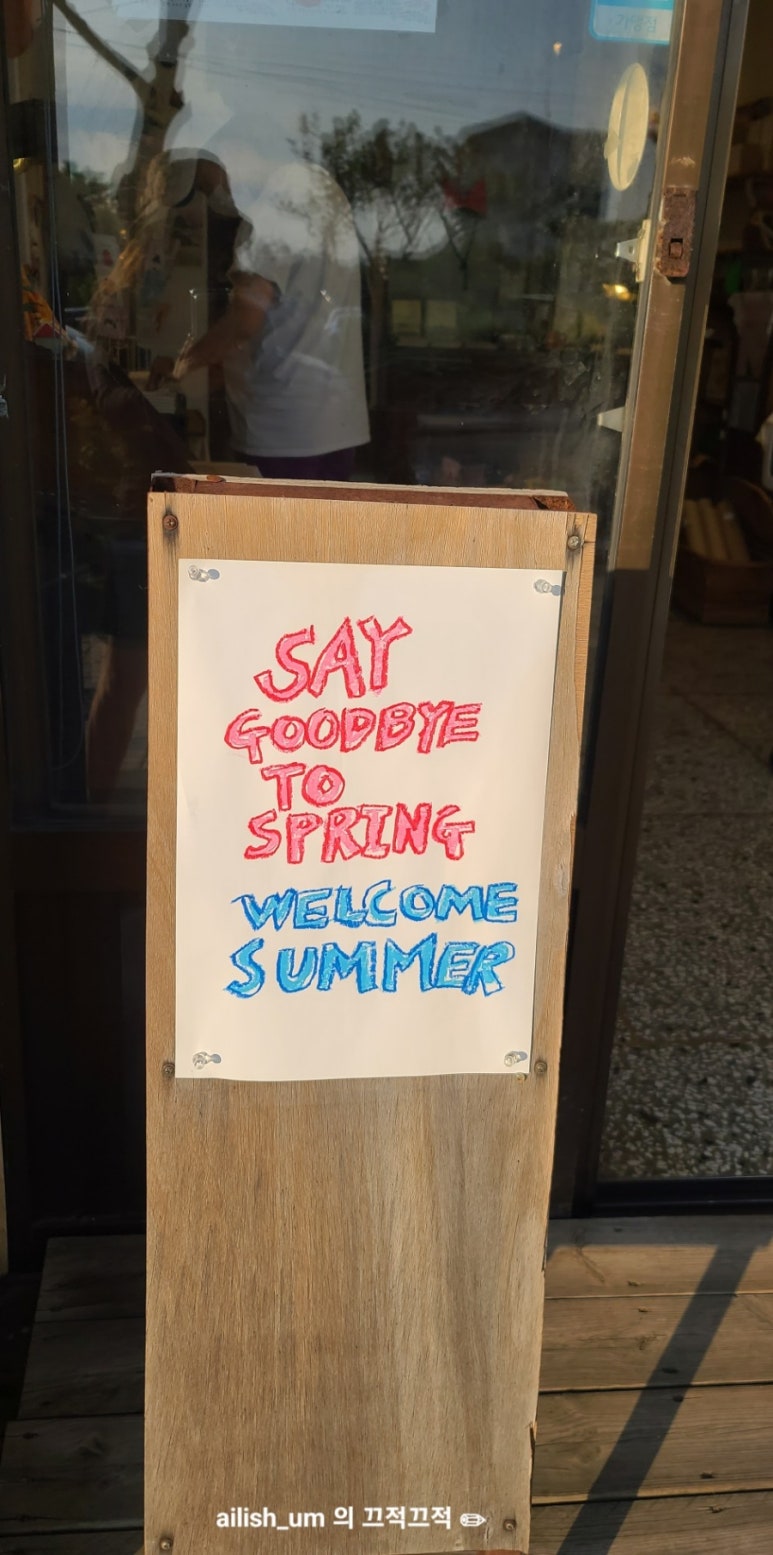 가맹점
SAY
GOODBYE
TO
SPRING
WELCOME
SUMMER
ailish_um 의 끄적끄적 ✏